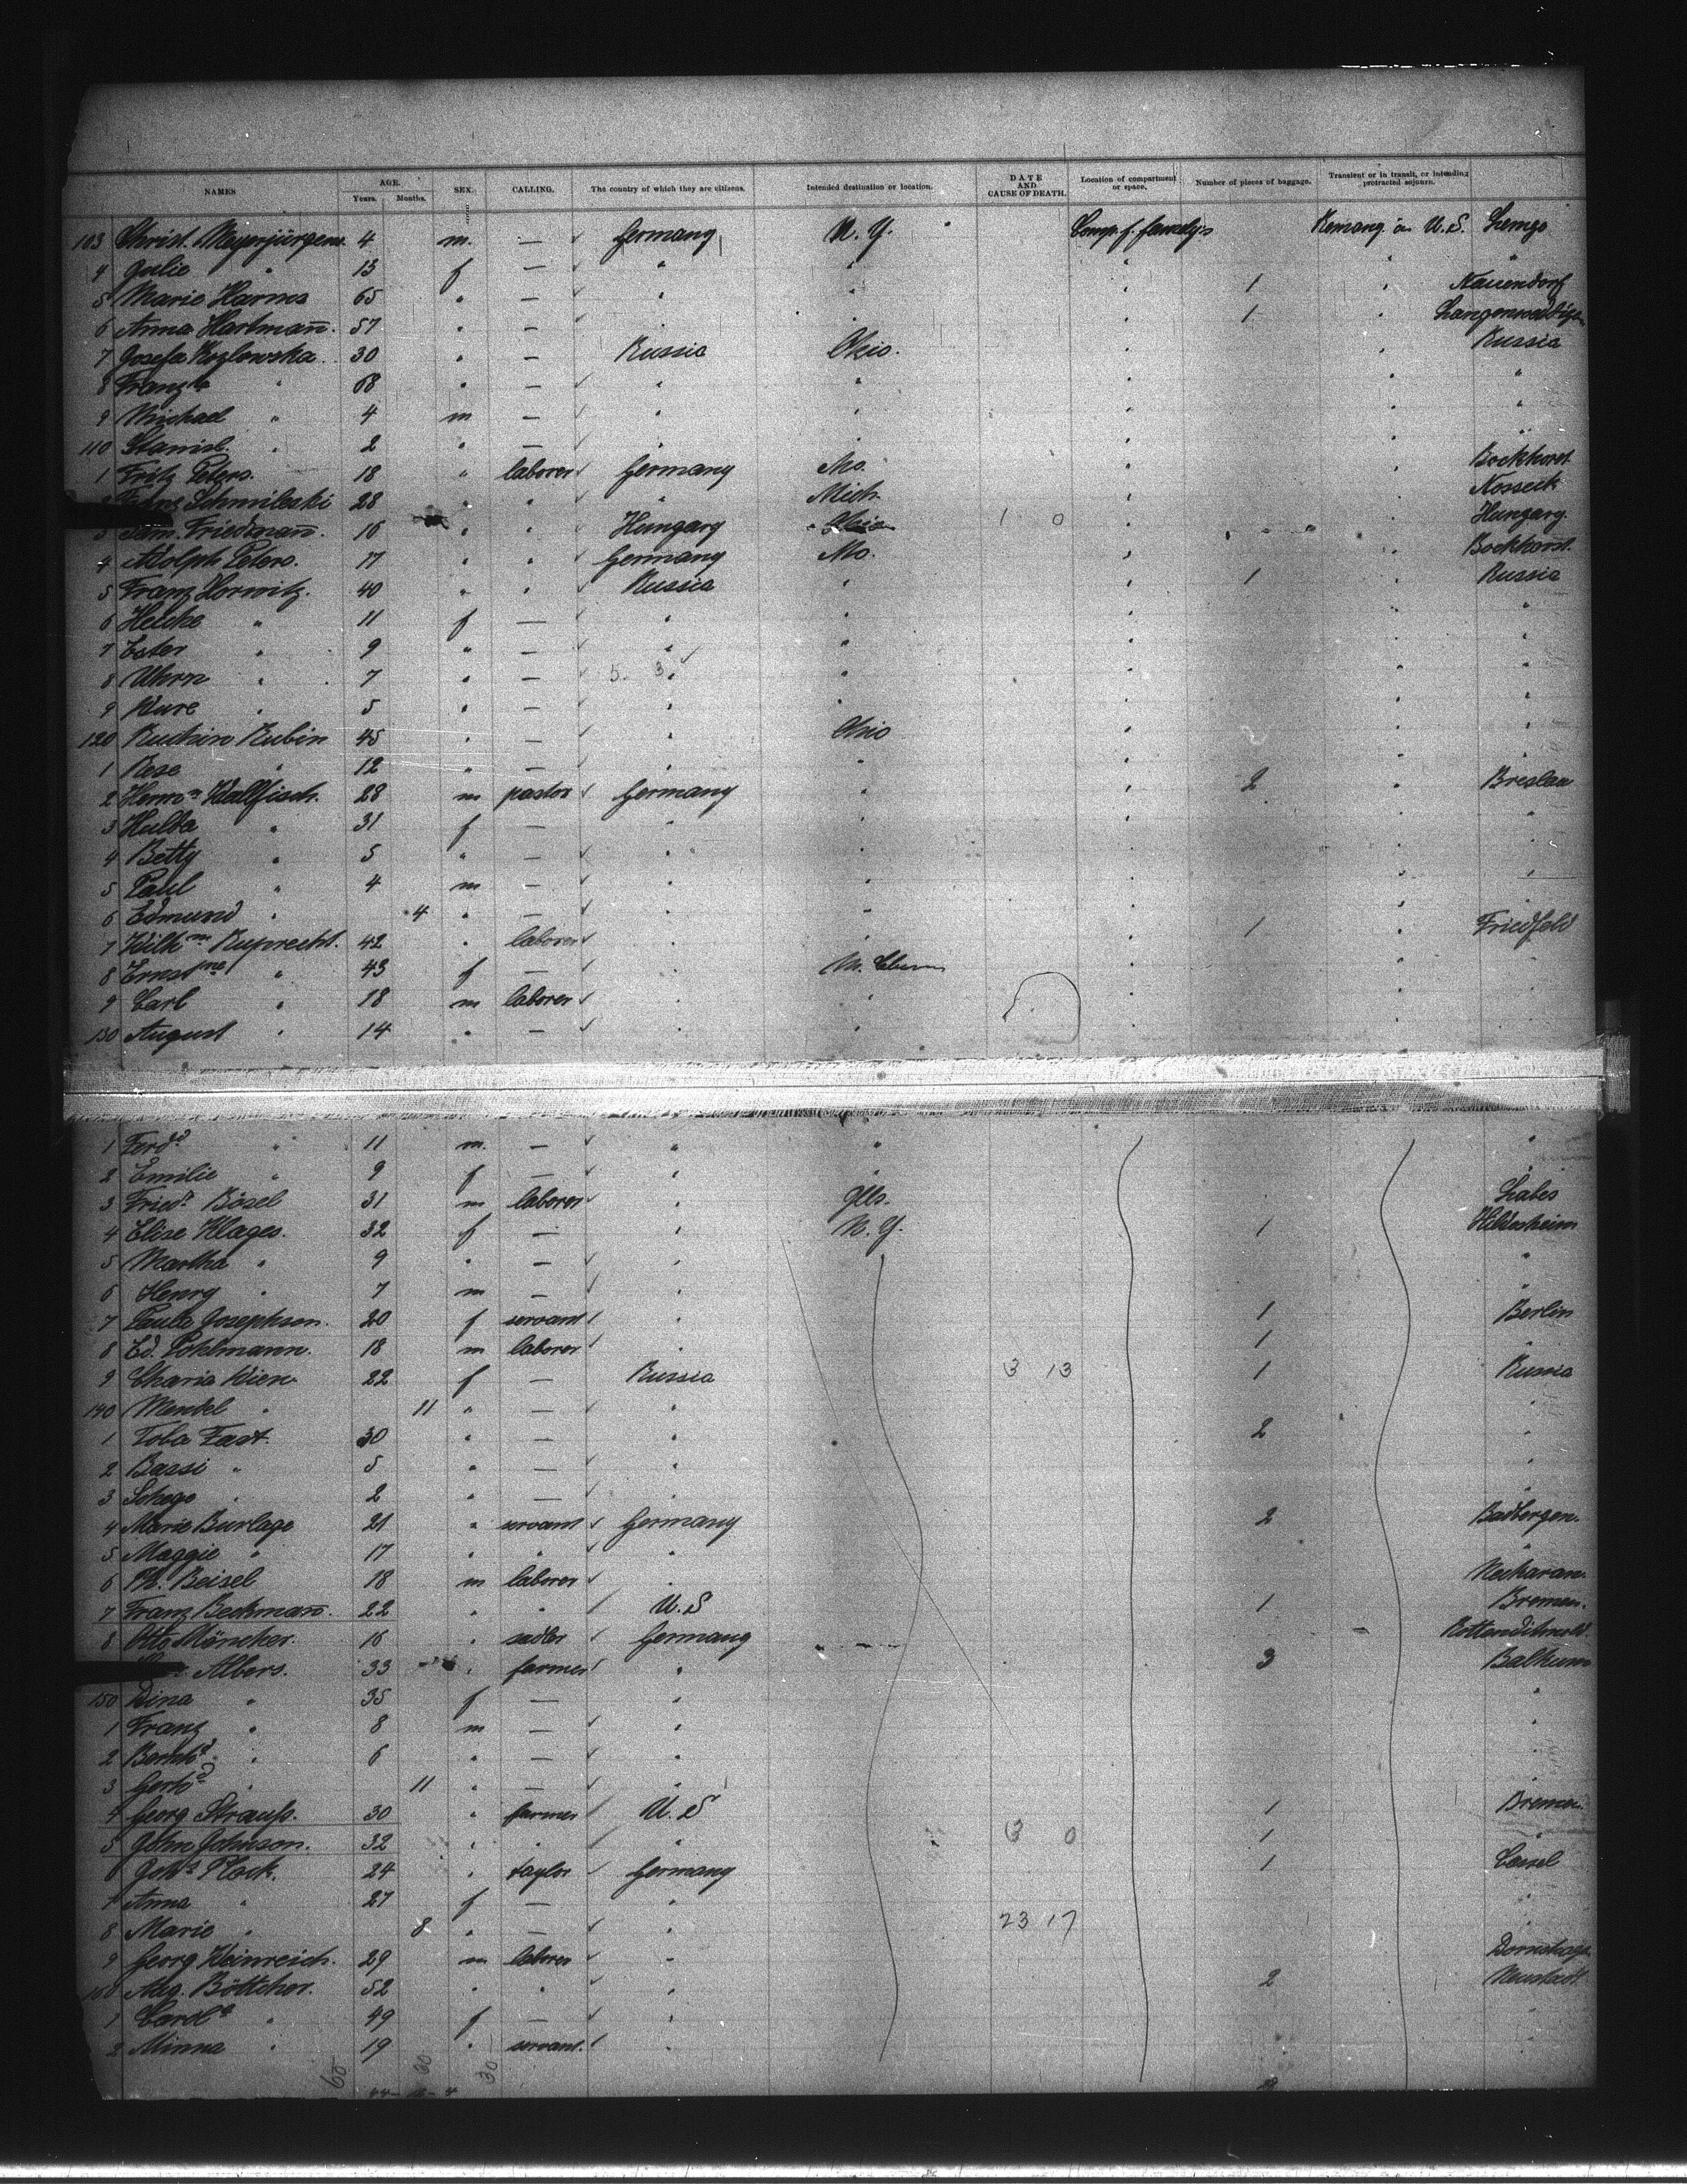 NAMES AGE. Years. Months. SEX. CALLING. The country of which they are citizens. Intended destination or location. DATE AND CAUSE OF DEATH. Location of compartment or space. Number of pieces of baggage. Transient or in transit, or intending protracted sojourn.
103 Christ. Meyerjürgens 4 m. — Germany N. Y. Comp. f. family's Remang. in U.S. Lemgo
4 Julie " 13 f — " " " " "
5 Marie Harms 65 " — " " " 1 " Nauendorf
6 Anna Hartmañ. 57 " — " " " 1 "
7 Josefa Kozlowska 30 " — Russia Ohio. " " Russia
8 " 68 " — " " " " "
9 Michael " 4 m — " " " " "
110 Stanisl. " 2 " — " " " " "
1 Fritz Peters. 18 " laborer Germany Mo. " " Bockhorst
28 " " " Mich. " " Nosseck
3 Sam. Friedmañ. 16 " " Hungary 1 0 " " Hungary.
4 Adolph Peters. 17 " " Germany Mo. " " Bockhorst.
5 Franz Horwitz. 40 " " Russia " " 1 " Russia
6 Heicke " 11 f — " " " " "
7 Ester " 9 " — " " " " "
8 " 7 " — 5. 3. " " " " "
9 " 5 " — " " " " "
120 Ruchin Rubin 45 " — " Ohio " " "
1 Rese " 12 " — " " " " "
2 Herm.n Wallfisch. 28 m pastor Germany " " 2 " Breslau
3 Hulda " 31 f — " " " " "
4 Betty " 5 " — " " " " "
5 Paul " 4 m — " " " " "
6 Edmund " 4 " — " " " " "
7 Wilhm Ruprecht. 42 " laborer " " " 1 " Friedfeld
8 Ernstne " 43 f — " " "
9 Carl " 18 m laborer " " " "
130 August " 14 " — " " " "
1 Ferdd " 11 m. — " " "
2 Emilie " 9 f — " " "
3 Friedr. Bösel 31 m laborer " Ills. Labes
4 Elise Klages. 32 f — " N. Y. 1 Hildesheim
5 Martha " 9 " — " "
6 Henry " 7 m — " "
7 Paula Josephson. 20 f servant " 1 Berlin
8 Ed. Pohlmann. 18 m laborer " 1 "
9 Charia Wien 22 f — Russia 3 13 1 Russia
140 Mendel " 11 " — " "
1 Toba Fast. 30 " — " 2 "
2 Bassi " 5 " — " "
3 " 2 " — " "
4 Marie Burlage 21 " servant Germany 2 Badbergen.
5 Maggie " 17 " " " "
6 Ph. Beisel 18 m laborer " Neckarau.
7 Franz Beckmañ. 22 " " U.S 1 Bremen.
8 Otto Möncker. 16 " sadler Germany
Albers. 33 " farmer " 3 Balkum
150 Dina " 35 f — " "
1 Franz " 8 m — " "
2 Bernhd " 6 " — " "
3 Gerhd " 11 " — " "
4 Georg Strauß. 30 " farmer U.S 1 Bremen.
5 John Johnson. 32 " " " 3 0 1 "
6 Johs Plock. 24 " taylor Germany 1 Cassel
7 Anna " 27 f — " "
8 Marie " 8 " — " 23 17 "
9 Georg Weinreich. 29 m laborer "
160 Aug. Böttcher. 52 " " " 2 Neustadt
1 " 49 f — " "
2 Minna " 19 " servant. " "
60 30 30